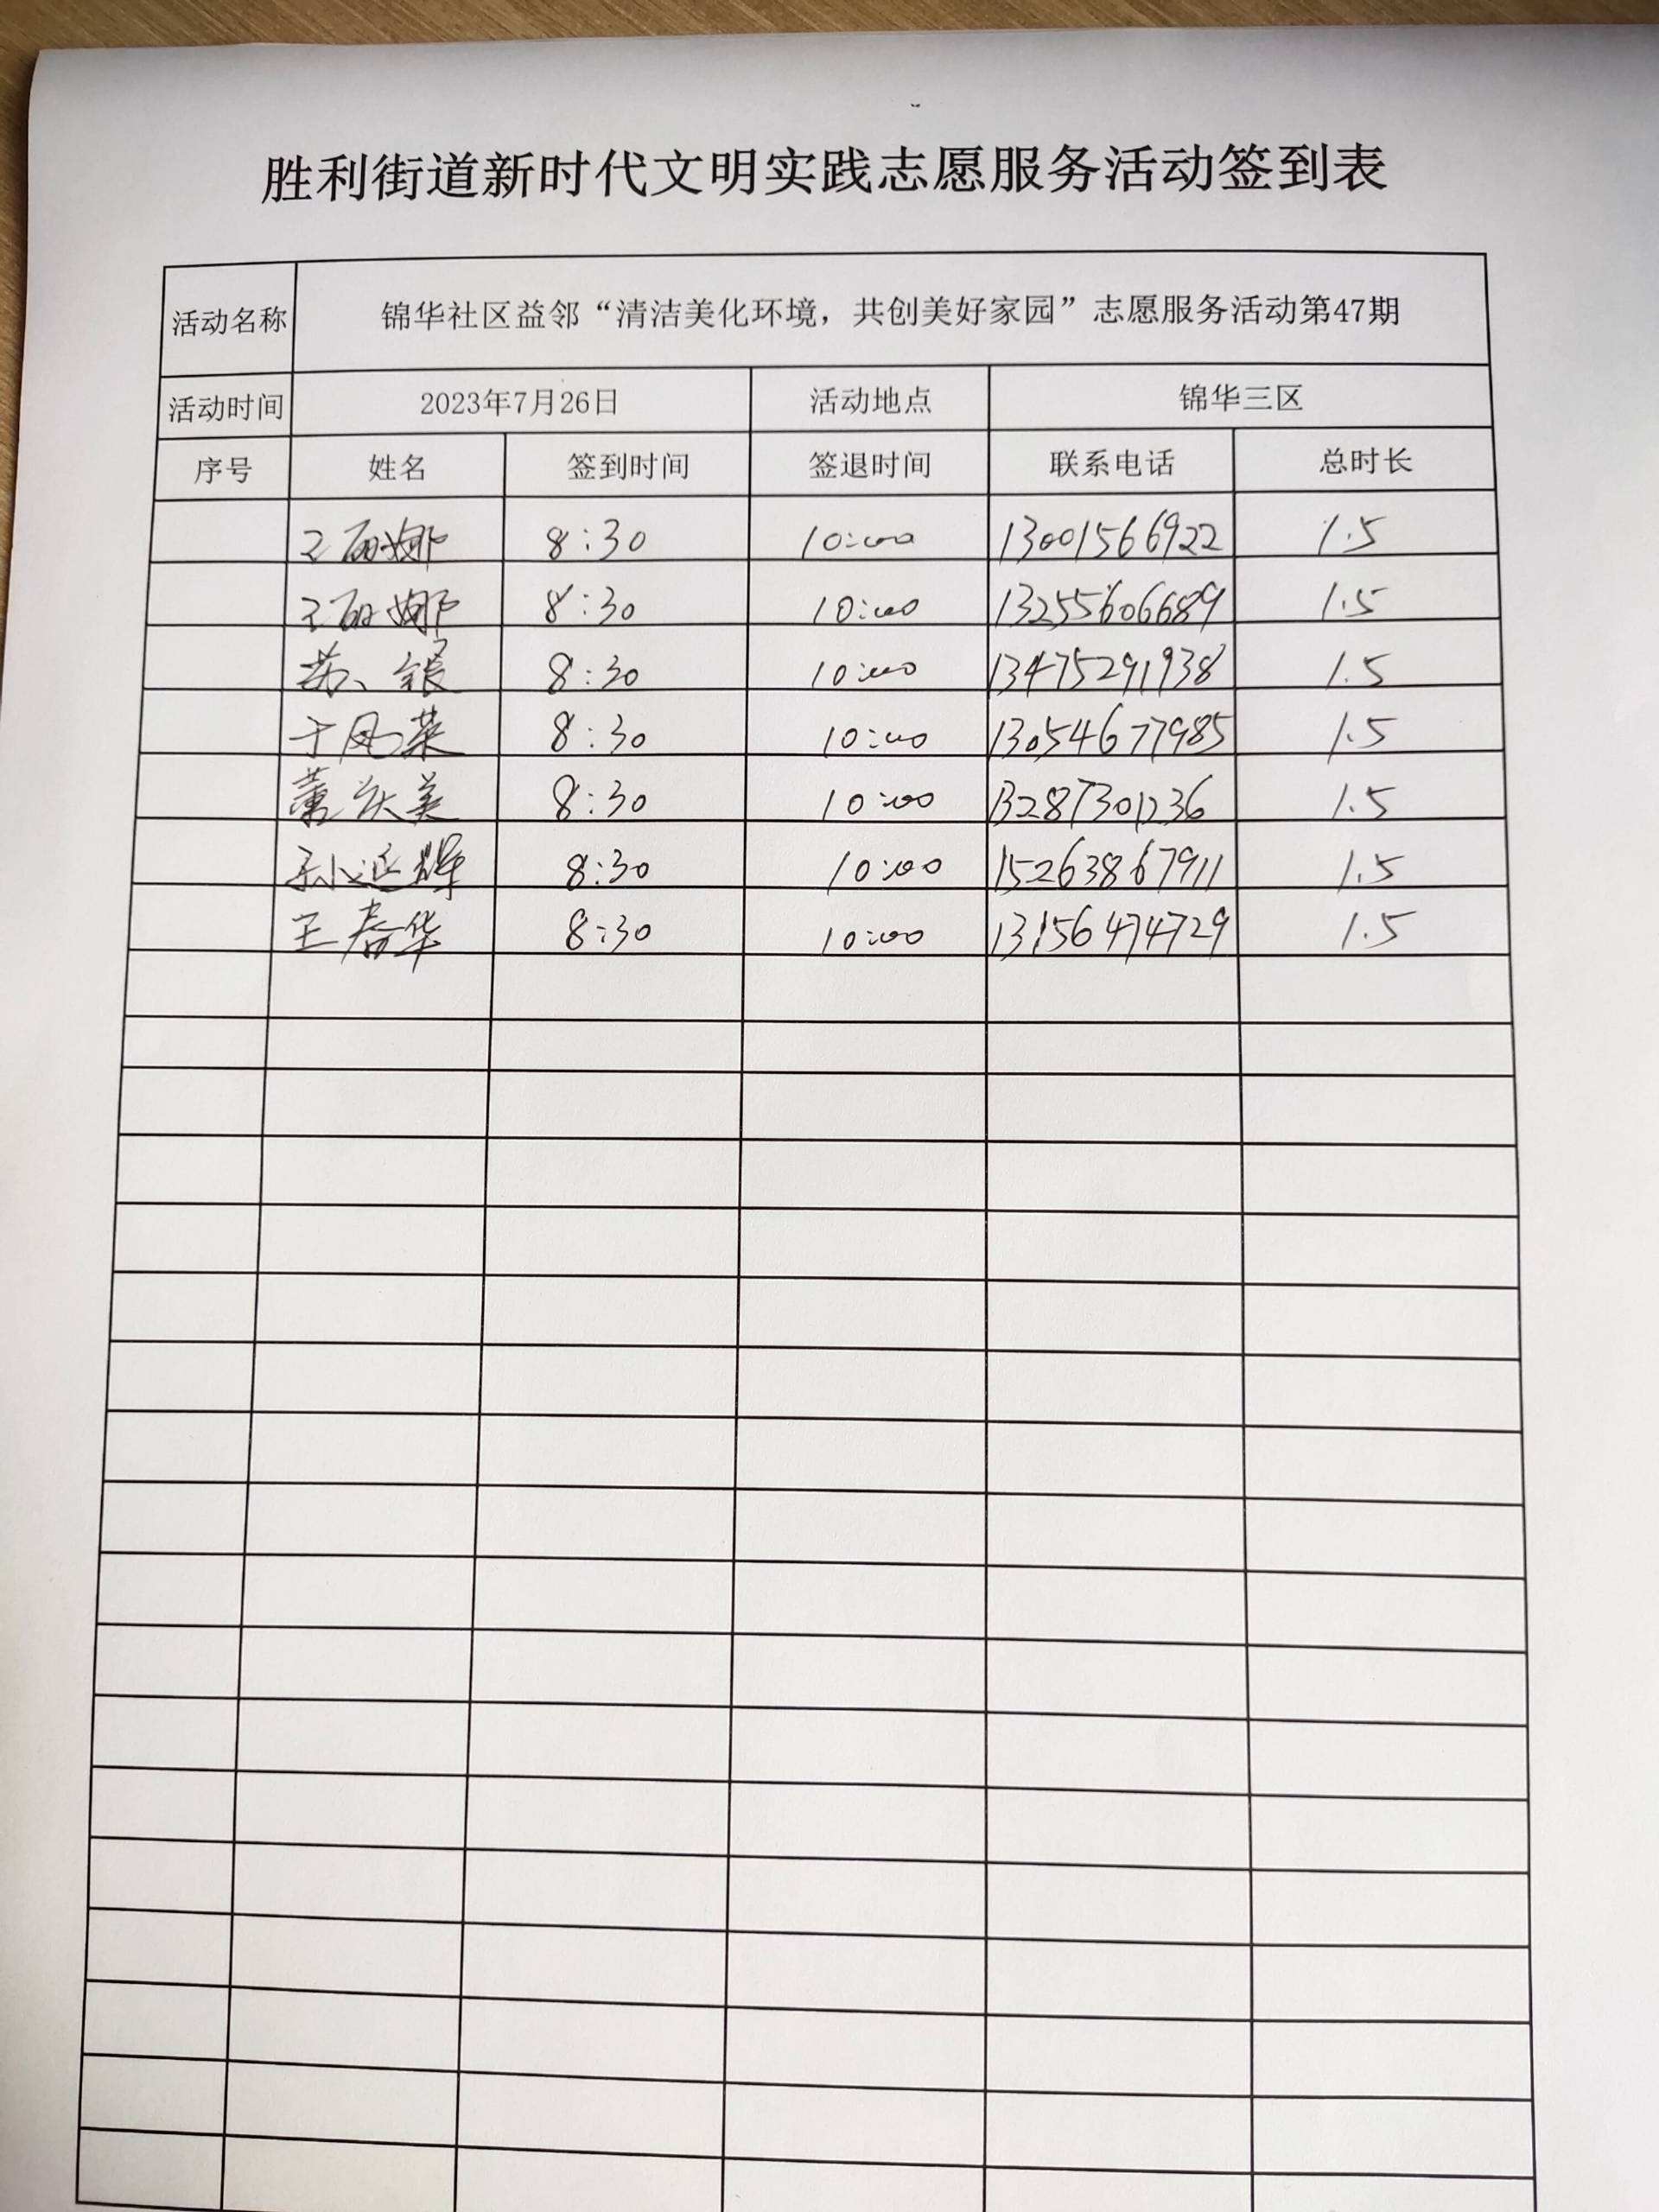 胜利街道新时代文明实践志愿服务活动签到表
活动名称 锦华社区益邻“清洁美化环境，共创美好家园”志愿服务活动第47期
活动时间 2023年7月26日 活动地点 锦华三区
序号 姓名 签到时间 签退时间 联系电话 总时长
王丽娜 8:30 10:00 13001566922 1.5
王丽娜 8:30 10:00 13255606689 1.5
苏银 8:30 10:00 13475291938 1.5
于凤菜 8:30 10:00 13054677985 1.5
董庆美 8:30 10:00 13287301236 1.5
孙延辉 8:30 10:00 15263867911 1.5
王春华 8:30 10:00 13156474729 1.5